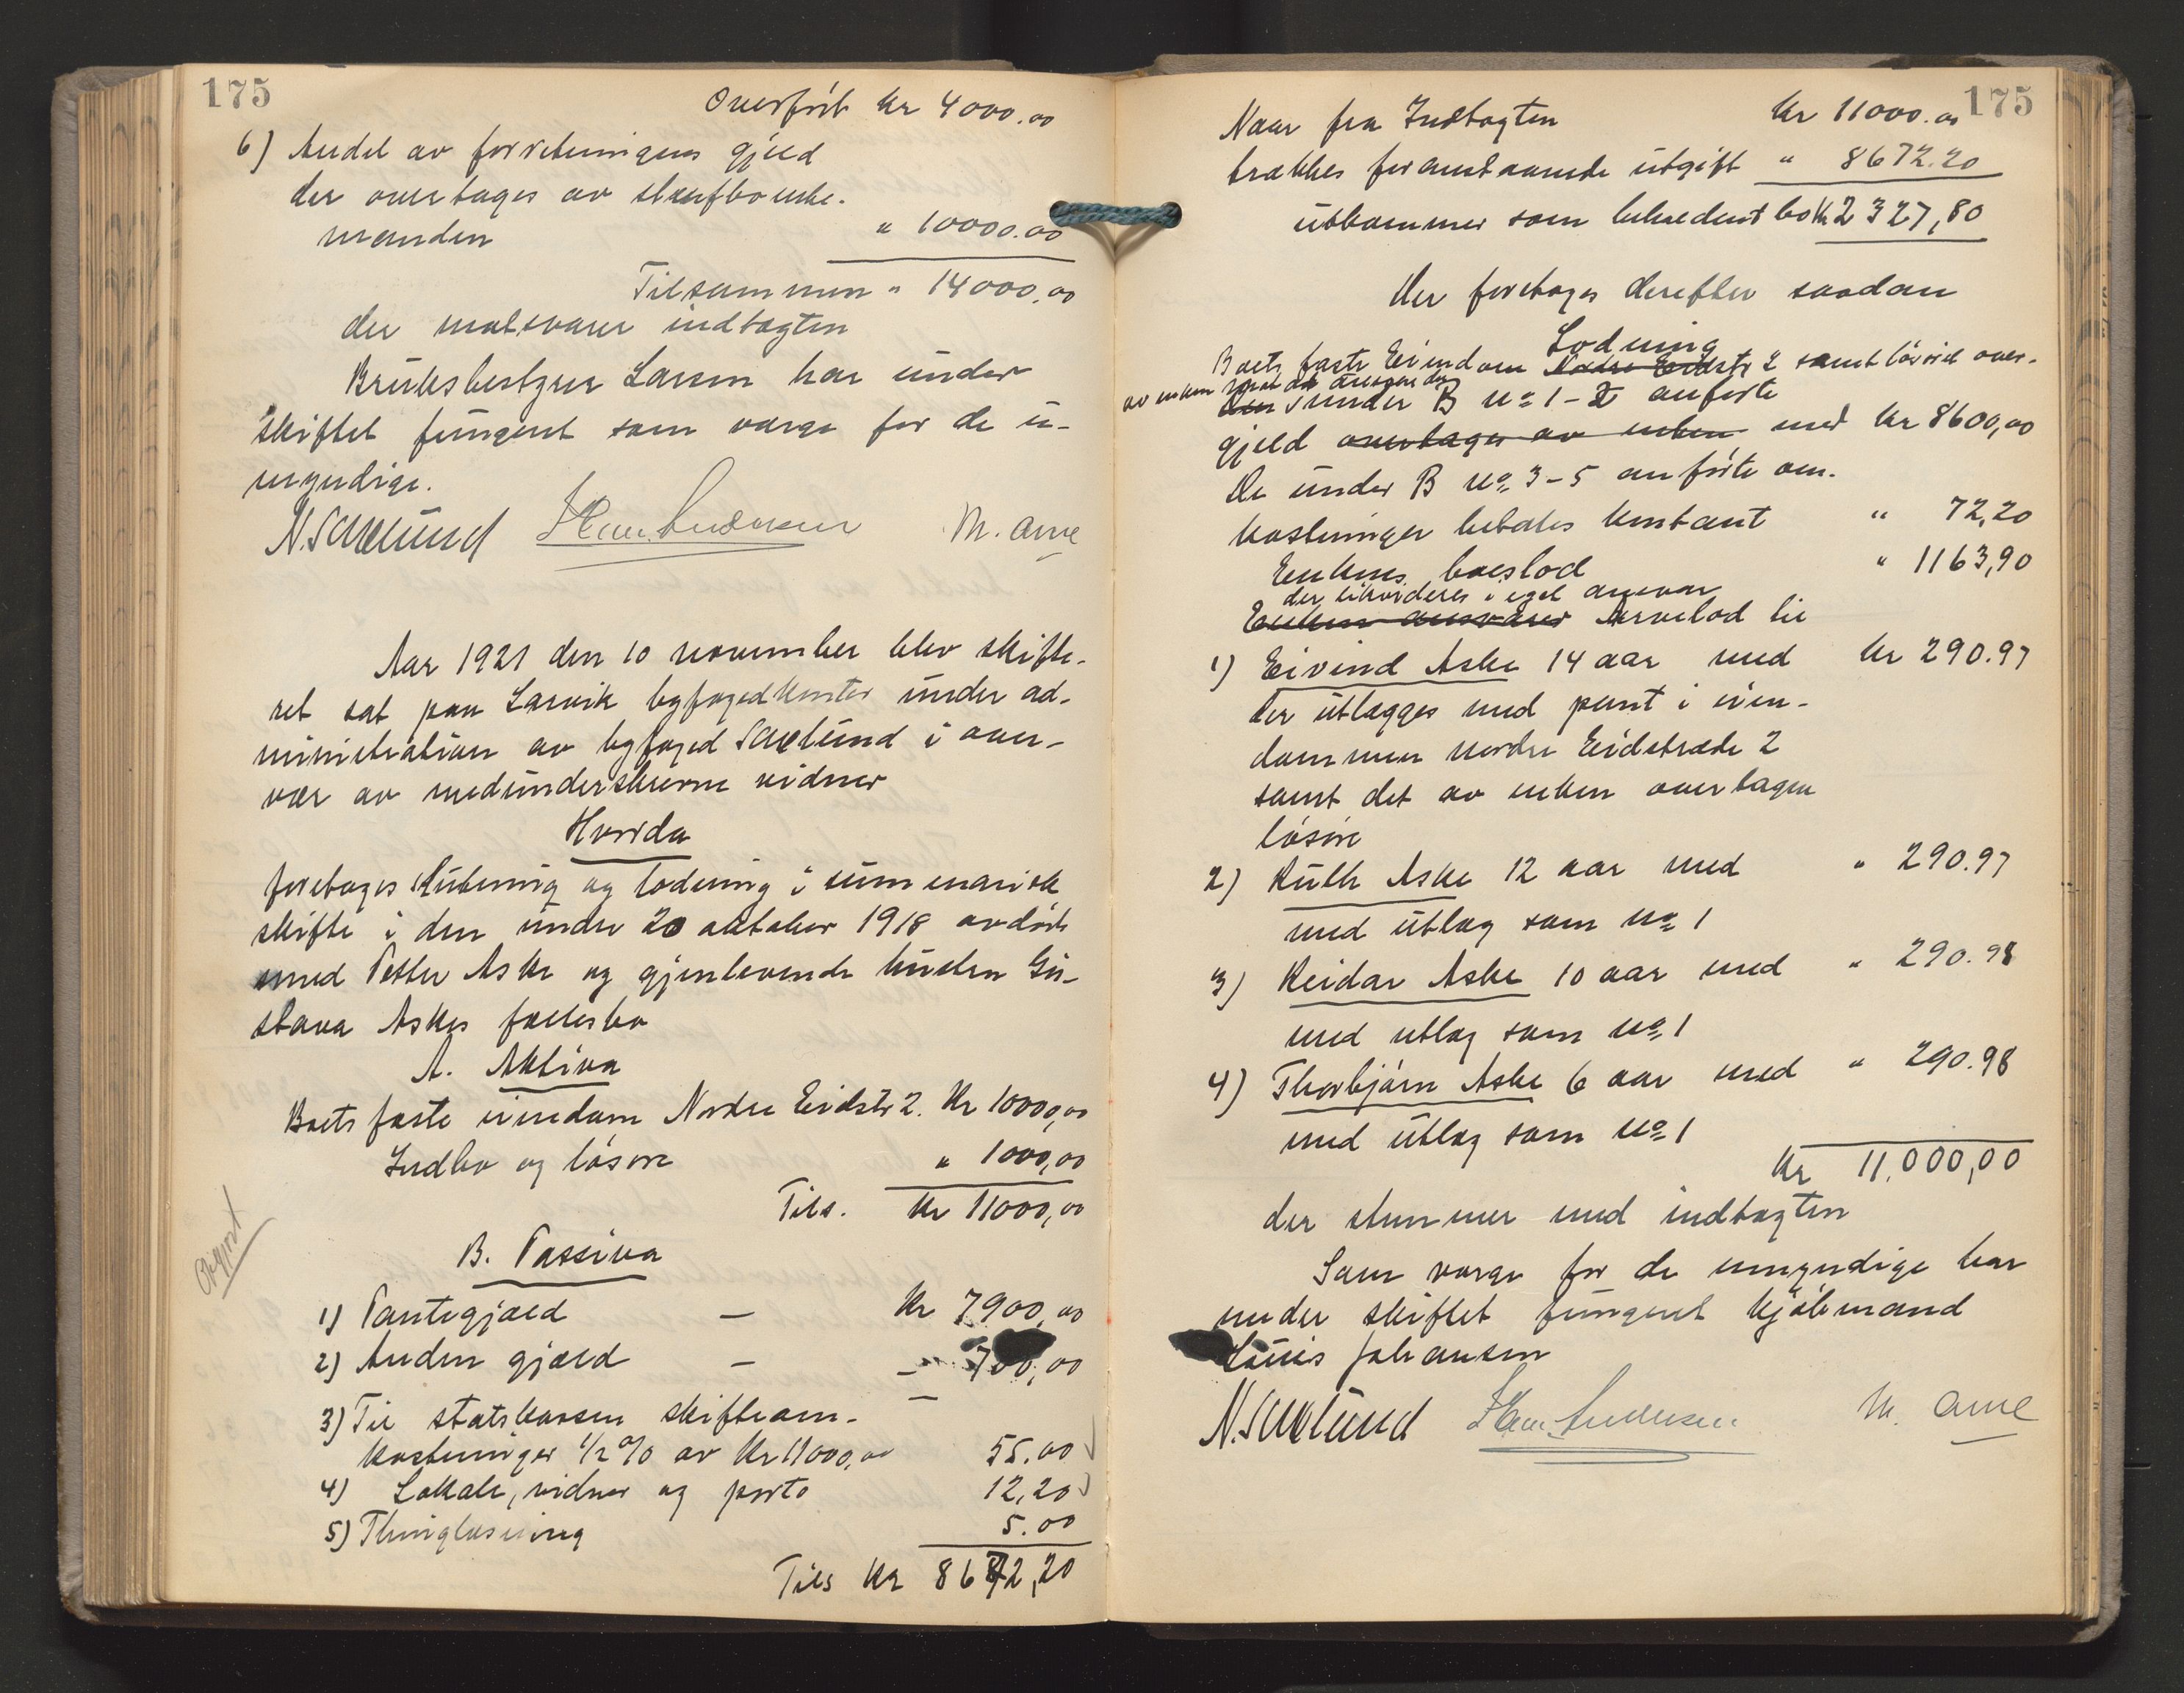 175
Overført kr 4000.00
6) Andel av forretningens gjeld
der overtages av
manden " 10000.00
Tilsammen " 14000.00
der motsvarer indtægten
Bruksbestyrer Larsen har under
skiftet fungert som værge for de u-
myndige.
N. Saxlund M. Arve
Aar 1921 den 10 november blev skifte-
ret sat paa Larvik byfogedkontor under ad-
ministration av byfoged Saxlund i over-
vær av medunderskrevne vidner
Hvorda
foretoges slutning og lodning i summarisk
skifte i den under 20 oktober 1918 avdøde
mand Petter Aske og gjenlevende hustru Gu-
stava Askes fællesbo
A. Aktiva
Boets faste eiendom Nordre Eidstr 2. Kr 10000,00
Indbo og løsøre " 1000,00
Tils. Kr 11000,00
Avgjort
B. Passiva
1) Pantegjæld — Kr 7900,00
2) Anden gjæld — - 700,00
3) Til statskassen skifteom-
kostninger 1/2 % av Kr 11000,00 55.00
4) Lokale, vidner og porto 12,20
5) Thinglæsning 5.00
Tils Kr 8672,20
175
Naar fra Indtægten Kr 11000.00
trækkes foranstaaende utgift " 8672.20
utkommer som behodent bo Kr 2327,80
Der foretoges derefter saadan
Lodning
Boets faste Eiendom Nordre Eidstr 2 samt løsøre over-
av enken mot at
Den under B No 1-2 anførte
gjeld overtages av enken med kr 8600,00
De under B No 3-5 anførte om-
kostninger betales kontant " 72,20
Enkens boeslod " 1163,90
der utvorderes i eget ansvar
Enkens ansvarer Arvelod til
1) Eivind Aske 14 aar med kr 290.97
der utlægges med pant i eien-
dommen Nordre Eidstræde 2
samt det av enken overtagne
løsøre
2) Ruth Aske 12 aar med " 290.97
med utlæg som No 1
3) Reidar Aske 10 aar med " 290.98
med utlæg som No 1
4) Thorbjørn Aske 6 aar med " 290.98
med utlæg som No 1
Kr 11.000,00
der stemmer med indtægten
Som værge for de umyndige har
under skiftet fungert kjøbmand
Louis Johansen
N. Saxlund M. Arve